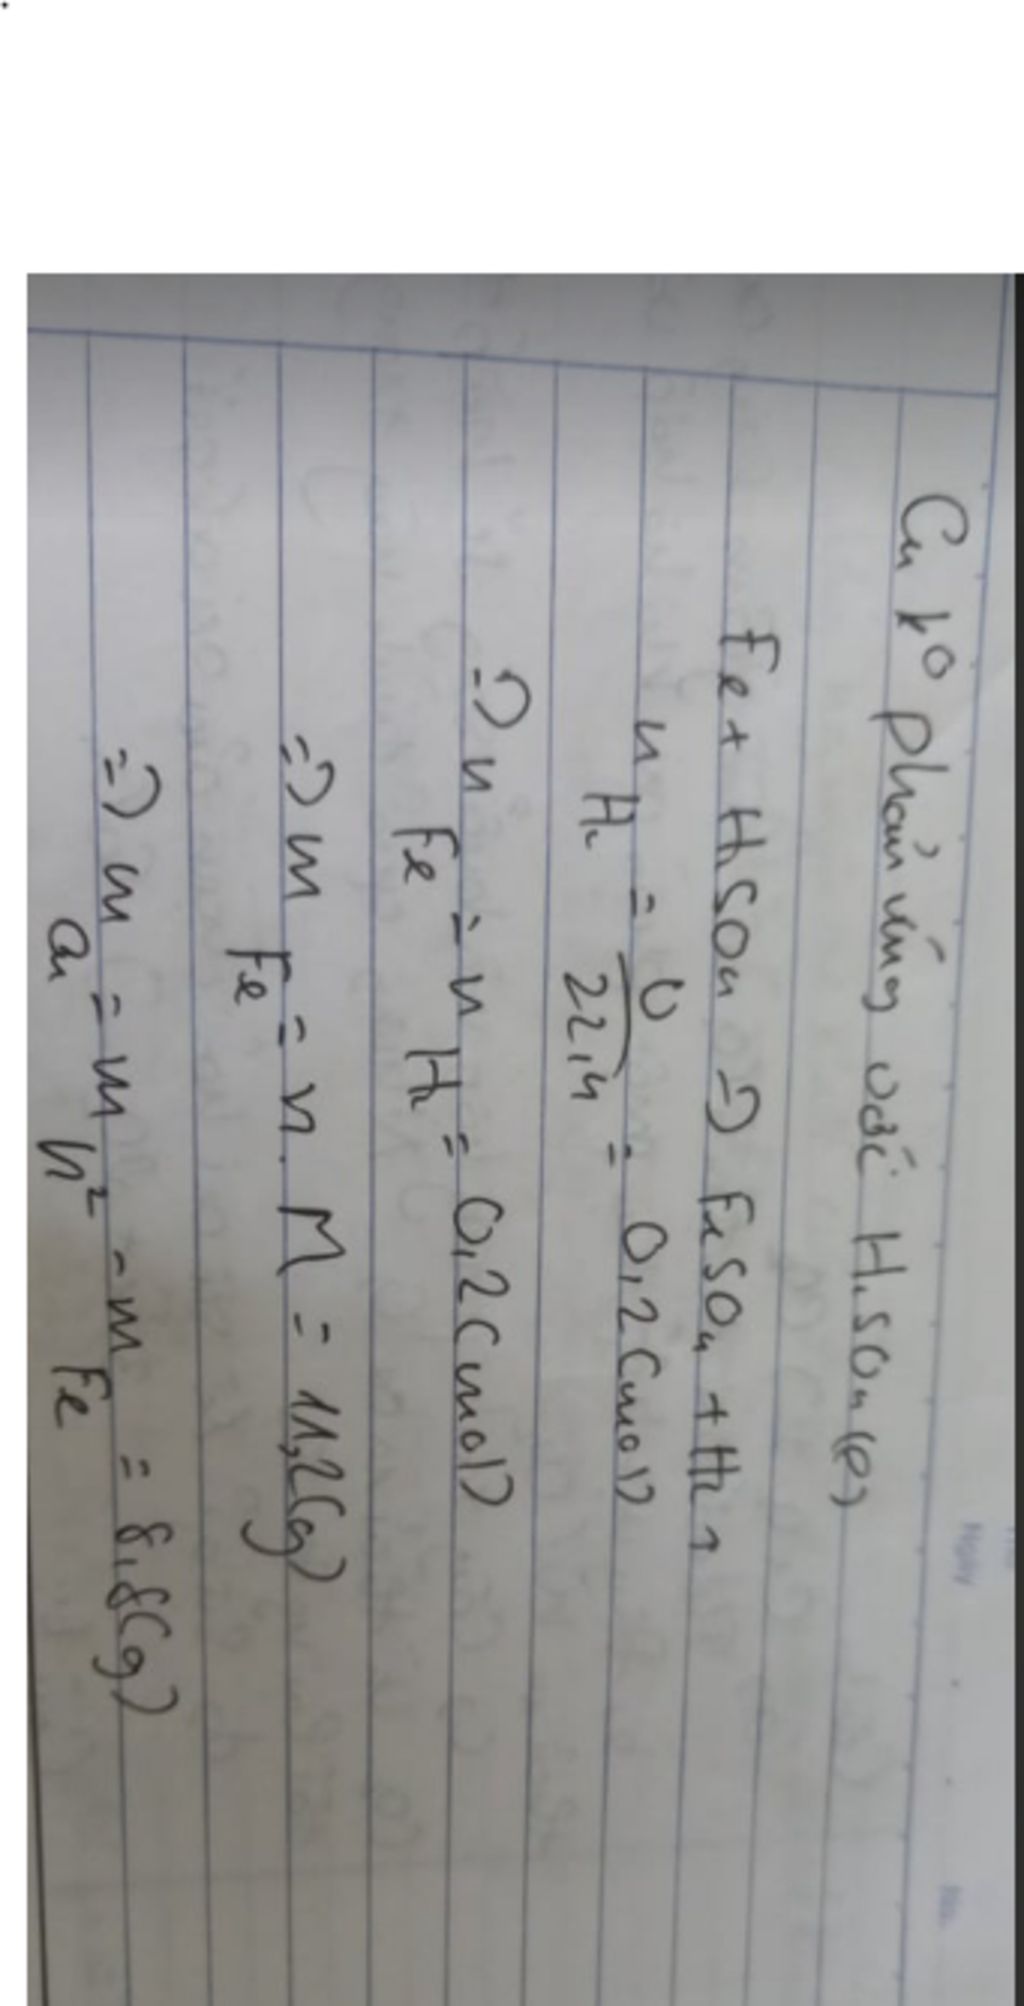 Cu ko phản ứng với H2SO4(l)
Fe + H2SO4 => FeSO4 + H2↑
n H2 = V/22,4 = 0,2(mol)
=> n Fe = n H2 = 0,2(mol)
=> m Fe = n.M = 11,2(g)
=> m Cu = m h2 - m Fe = 8,8(g)